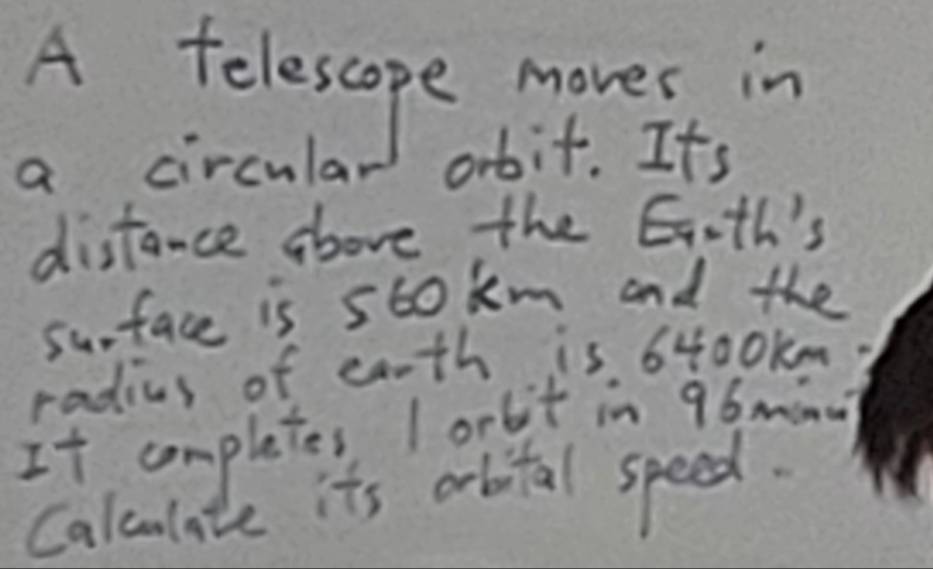 A telescope moves in
a circular orbit. Its
distance above the Earth's
surface is 560 km and the
radius of earth is 6400km.
It completes 1 orbit in 96 minu
Calculate its orbital speed.